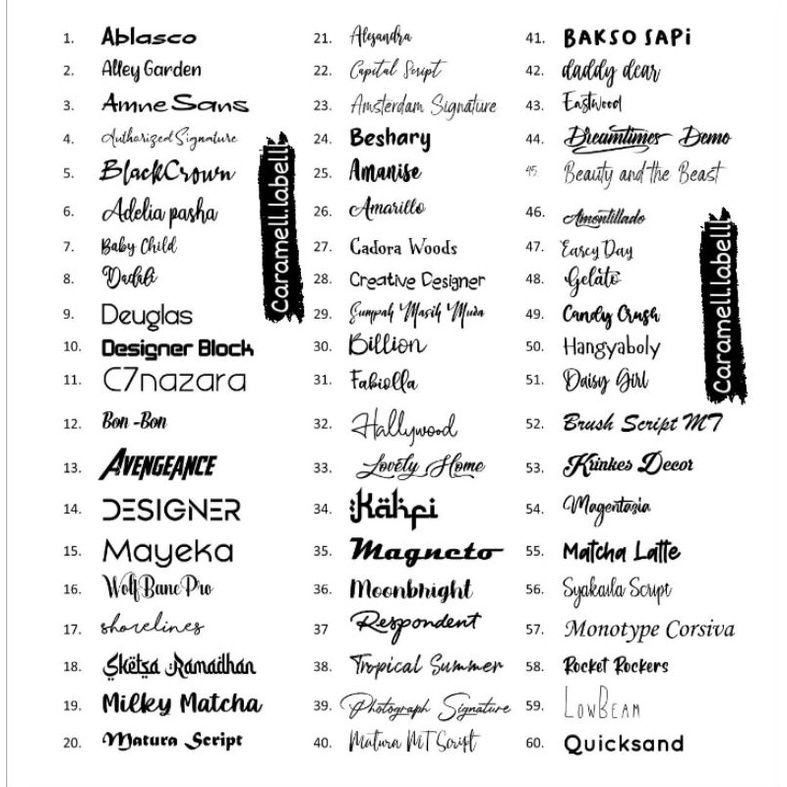 1. Ablasco
2. Alley Garden
3. Amne Sans
4. Authorized Signature
5. BlackCrown
6. Adelia pasha
7. Baby Child
8. Dadali
9. Deuglas
10. Designer Block
11. C7nazara
12. Bon -Bon
13. AVENGEANCE
14. DESIGNER
15. Mayeka
16. Wolf Bane Pro
17. shorelines
18. Sketsa Ramadhan
19. Milky Matcha
20. Matura Script
Caramell.labelll
21. Alejandra
22. Capital Script
23. Amsterdam Signature
24. Beshary
25. Amanise
26. Amarillo
27. Cadora Woods
28. Creative Designer
29. Sumpah Masih Muda
30. Billion
31. Fabiolla
32. Hallywood
33. Lovely Home
34. Kahfi
35. Magneto
36. Moonbright
37 Respondent
38. Tropical Summer
39. Photograph Signature
40. Matura MT Script
41. BAKSO SAPi
42. daddy dear
43. Eastwood
44. Dreamtimes Demo
45. Beauty and the Beast
46. Amontillado
47. Earcy Day
48. Gelato
49. Candy Crush
50. Hangyaboly
51. Daisy Girl
52. Brush Script MT
53. Krinkes Decor
54. Magentasia
55. Matcha Latte
56. Syakaila Script
57. Monotype Corsiva
58. Rocket Rockers
59. LOWBEAM
60. Quicksand
Caramell.labelll